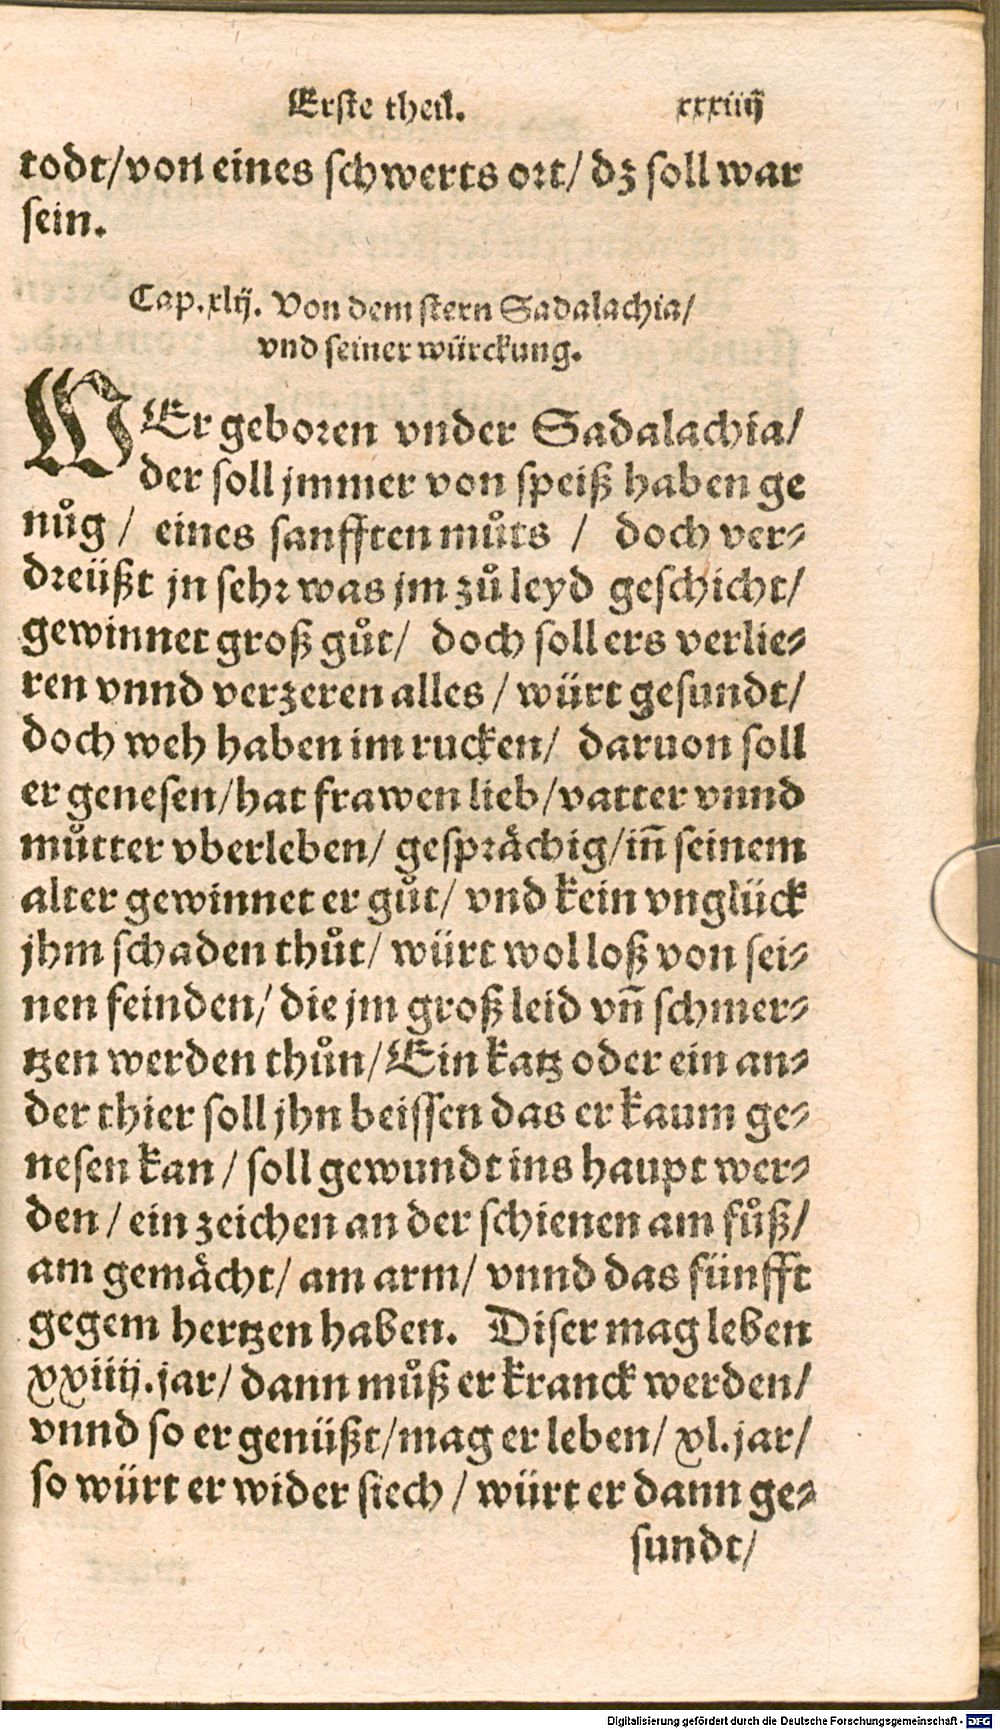 Erſte theil. xxxiiij
todt/von eines ſchwerts ort/ dz ſoll war
ſein.
Cap.xlij. Von dem ſtern Sadalachia/
vnd ſeiner würckung.
WEr geboren vnder Sadalachia/
der ſoll jmmer von ſpeiß haben ge
nůg / eines ſanfften můts / doch ver-
dreüßt jn ſehr was jm zů leyd geſchicht/
gewinnet groß gůt/ doch ſoll ers verlie-
ren vnnd verzeren alles / würt geſundt/
doch weh haben im rucken/ daruon ſoll
er geneſen/hat frawen lieb/vatter vnnd
můtter vberleben/ geſprächig/iñ ſeinem
alter gewinnet er gůt/ vnd kein vnglück
jhm ſchaden thůt/ würt wol loß von ſei-
nen feinden/ die jm groß leid vñ ſchmer-
tzen werden thůn/Ein katz oder ein an-
der thier ſoll jhn beiſſen das er kaum ge-
neſen kan / ſoll gewundt ins haupt wer-
den / ein zeichen an der ſchienen am fůß/
am gemächt/ am arm/ vnnd das fünfft
gegem hertzen haben. Diſer mag leben
xxiiij.jar/ dann můß er kranck werden/
vnnd ſo er genüßt/mag er leben/ xl.jar/
ſo würt er wider ſiech / würt er dann ge-
ſundt/
Digitalisierung gefördert durch die Deutsche Forschungsgemeinschaft - DFG